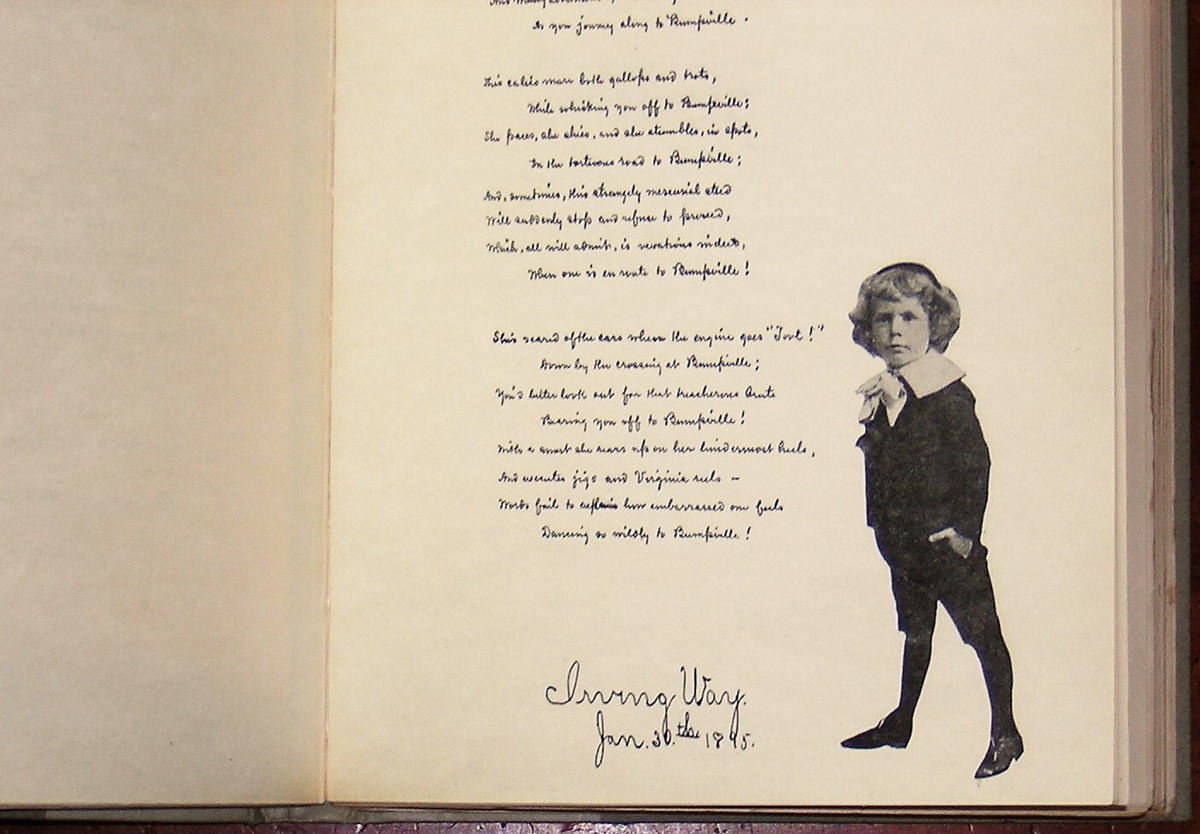 As you journey along to Bumpville.
This calico mare both gallops and trots,
While whisking you off to Bumpville;
She paces, she shies, and she stumbles, in spots,
In the tortuous road to Bumpville;
And, sometimes, this strangely mercurial steed
Will suddenly stop and refuse to proceed,
Which, all will admit, is vexatious indeed,
When one is en route to Bumpville!
She's scared of the cars when the engine goes "Toot!"
Down by the crossing at Bumpville;
You'd better look out for that treacherous brute
Bearing you off to Bumpville!
With a snort she rears up on her hindermost heels,
And executes jigs and Virginia reels –
Words fail to explain how embarrassed one feels
Dancing so wildly to Bumpville!
Irving Way.
Jan. 30.th 1895.